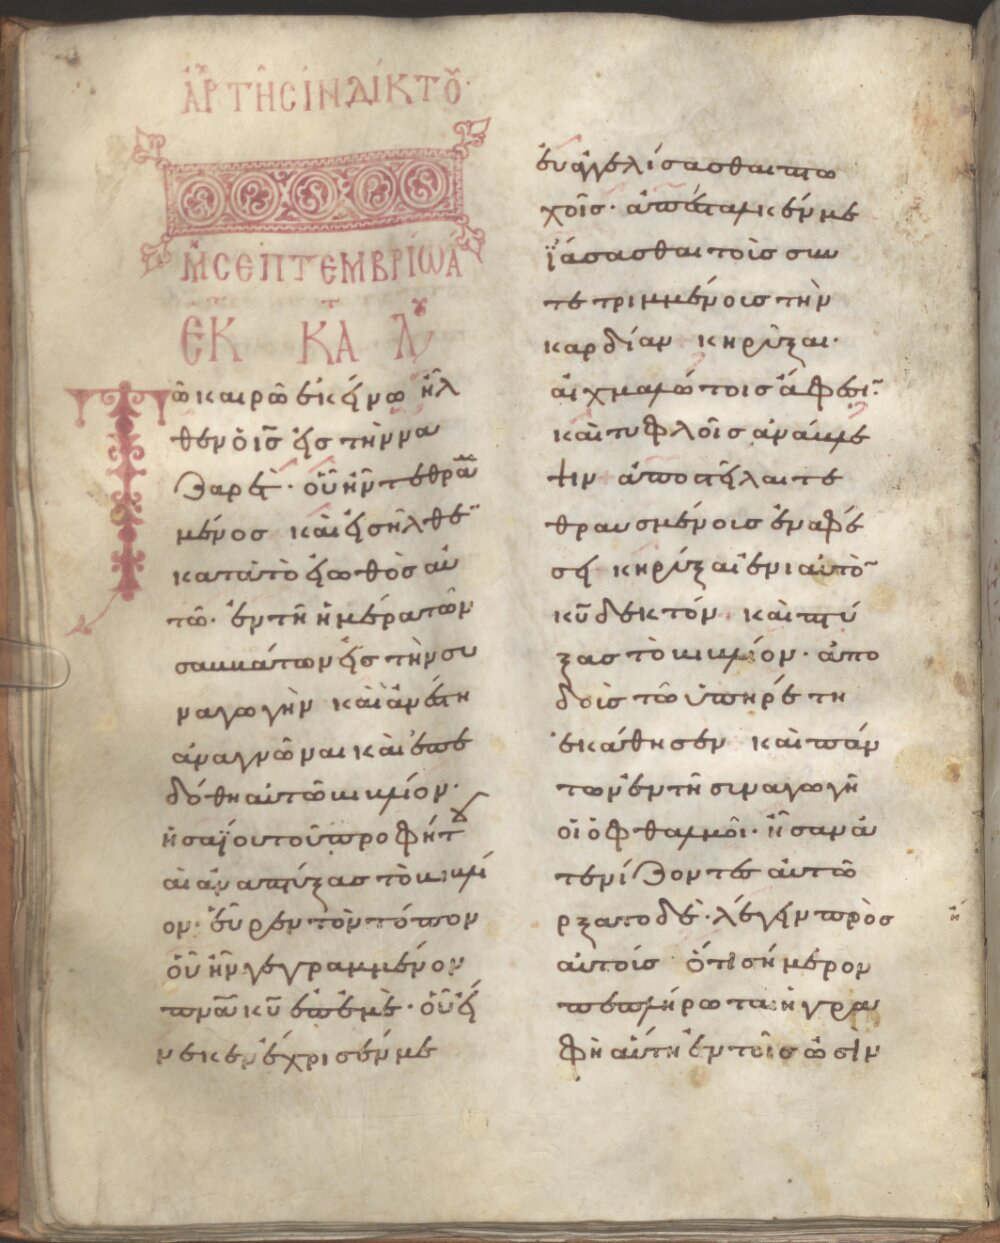 ἀρχ τῆς ἰνδίκτου
μ σεπτεμβρίω α
ἐκ κατ λου
Τῶ καιρῶ ἐκείνω ἦλ
θεν ὁ ις εἰς τὴν να
ζαρέτ· οὗ ἦν τεθραμ
μένος καὶ εἰσῆλθεν
κατὰ τὸ εἰωθὸς αυ
τῶ· ἐν τῆ ἡμέρα τῶν
σαββάτων εἰς τὴν συ
ναγωγὴν καὶ ἀνέστη
ἀναγνῶναι καὶ ἐπε
δόθη αὐτῶ βιβλίον·
ἡσαΐου τοῦ προφήτου
αὶ ἀναπτύξας τὸ βιβλί
ον· εὗρεν τὸν τόπον
οὗ ἦν γεγραμμένον
πνα κυ ἐπ ἐμὲ· οὗ εἵ
νεκεν ἔχρισέν με
εὐαγελίσασθαι πτω
χοῖς· ἀπέσταλκέν με
ϊάσασθαι τοῖς συν
τετριμμένοις τὴν
καρδίαν κηρύξαι·
αἰχμαλώτοις ἄφεσιν
καὶ τυφλοῖς ἀνάβλε
ψιν ἀποστεῖλαι τε
θραυσμένοις ἐν ἀφέ
σει κηρύξαι ἐνιαυτὸν
κυ δεκτόν καὶ πτύ
ξας τὸ βιβλίον· ἀπο
δοὶς τῶ ὑπηρέτη
ἐκάθησεν καὶ πάν
των ἐν τῆ συναγωγῆ
οἱ ὀφθαλμοῖ· ἦσαν ἀ
τενίζοντες αὐτῶ
ἤρξατο δὲ· λέγειν πρὸς
αὐτοίς ὅτι σήμερον
πεπλήρωται ἡ γρα
φὴ αὕτη ἐν τοῖς ὠσὶν